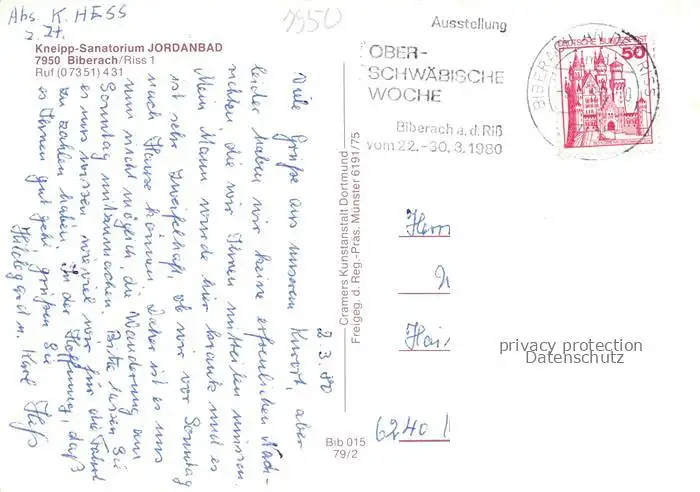 Abs. K. HESS
z. Zt.
Kneipp-Sanatorium JORDANBAD
7950 Biberach/Riss 1
Ruf (0 73 51) 4 31
7950
Ausstellung
OBER-
SCHWÄBISCHE
WOCHE
Biberach a. d. Riß
vom 22.-30.3.1980
DEUTSCHE BUNDESPOST
50
BIBERACH
2.3.80
Viele Grüße aus unserem Kurort, aber
leider haben wir keine erfreulichen Nach-
richten, die wir Ihnen mitteilen müssen.
Mein Mann wurde hier krank und es
ist sehr zweifelhaft, ob wir vor Sonntag
nach Hause können. Daher ist es uns
nun nicht möglich, die Wanderung am
Sonntag mitzumachen. Bitte lassen Sie
es uns wissen wieviel wir für die Fahrt
zu zahlen haben. In der Hoffnung, daß
es Ihnen gut geht, grüßen Sie
Hildegard u. Karl Heß
Cramers Kunstanstalt Dortmund
Freigeg. d. Reg.-Präs. Münster 6191/75
Bib 015
79/2
Herrn
6240
privacy protection
Datenschutz